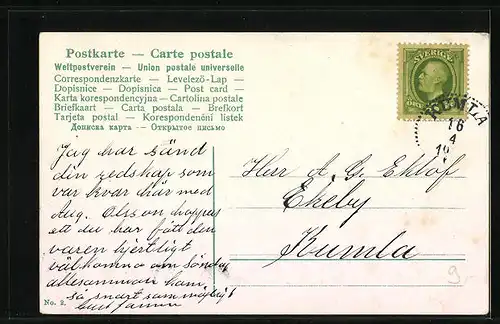 Postkarte — Carte postale
Weltpostverein — Union postale universelle
Correspondenzkarte — Levelező-Lap —
Dopisnice — Dopisnica — Post card —
Karta korespondencyjna — Cartolina postale
Briefkaart — Carta postala — Brefkort
Tarjeta postal — Korespondenční lístek
Дописна карта — Открытое письмо
SVERIGE
16
4
Jag har sänd
din redskap som
var kvar här med
Aug. Olsson hoppas
att du har fått den
varen hjertligt
välkomna om Söndag
allesamman ham,
så snart som möjligt
Herr A. G. Eklöf
Ekeby
Kumla
No. 2.
9-